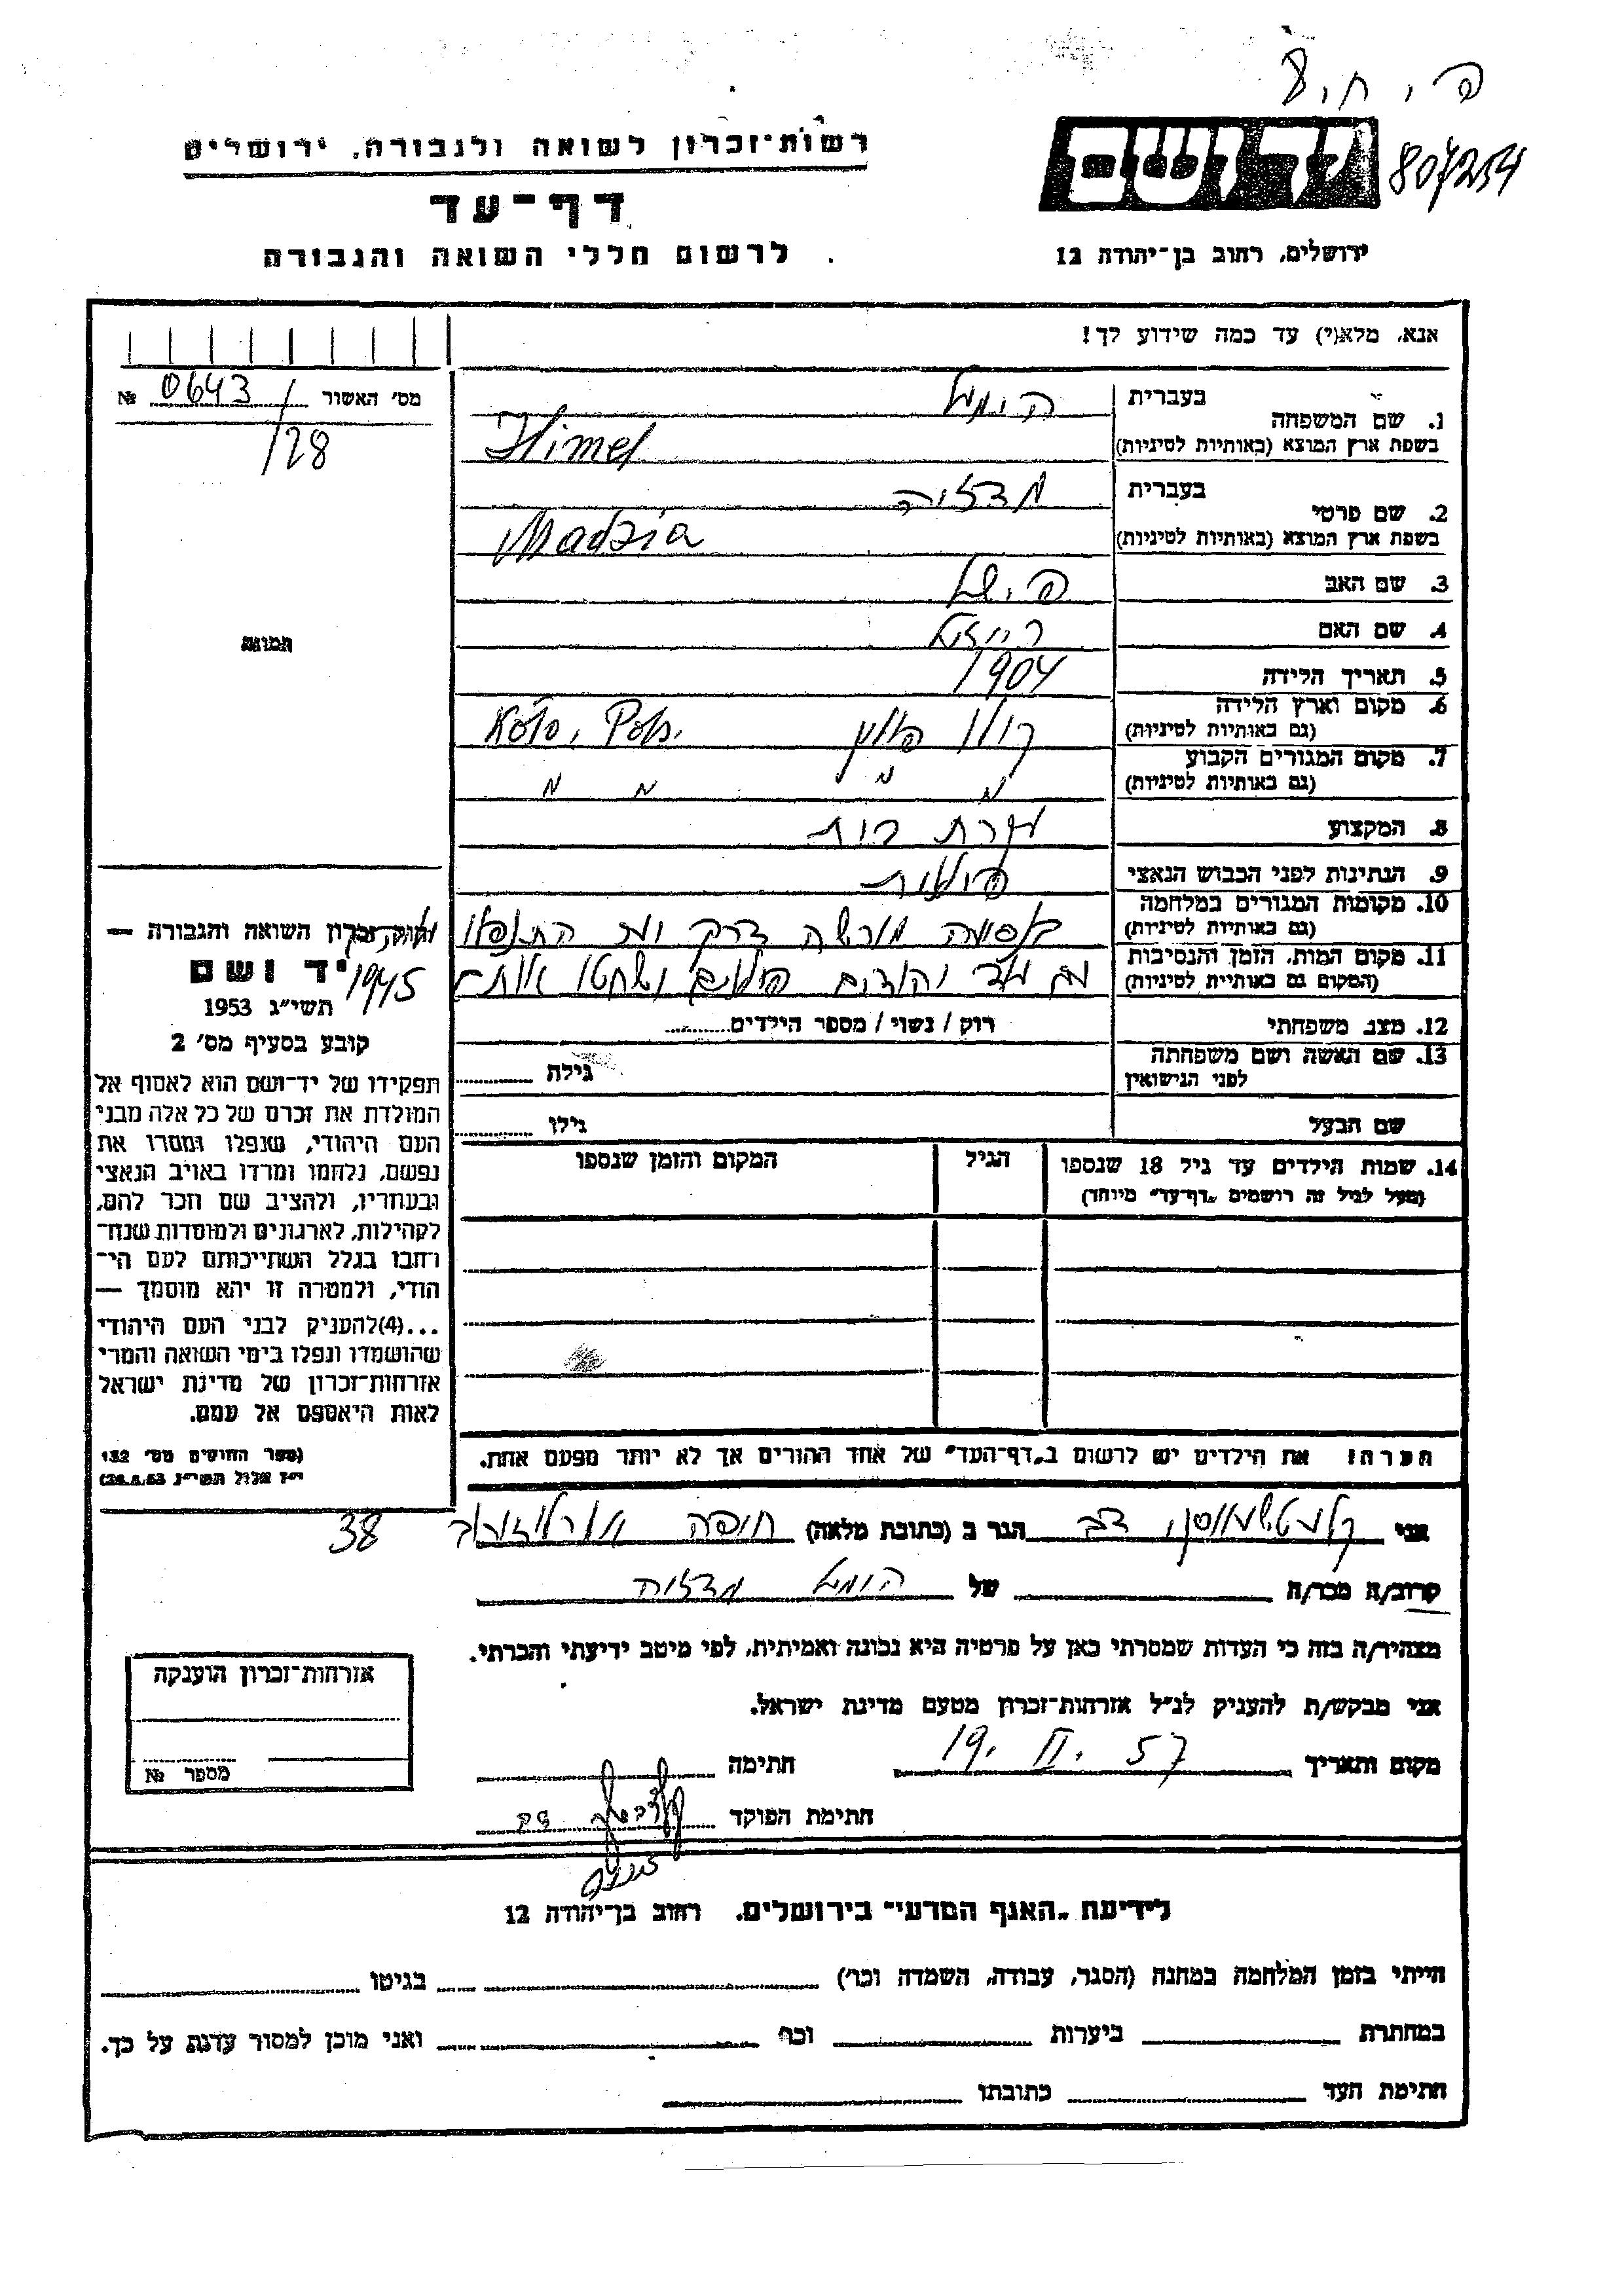 ה.י.ח.ע
807254
יד ושם
רשות־זכרון לשואה ולגבורה, ירושלים
דף־עד
לרשום חללי השואה והגבורה
ירושלים, רחוב בן־יהודה 12
אנא, מלא(י) עד כמה שידוע לך!
מס' האשור № 0643/128
תמונה
1. שם המשפחה
בעברית הימל
בשפת ארץ המוצא (באותיות לטיניות) Himel
2. שם פרטי
בעברית מדזיה
בשפת ארץ המוצא (באותיות לטיניות) Madzia
3. שם האב
4. שם האם רייזל
5. תאריך הלידה 1904
6. מקום וארץ הלידה קולו פולין Koło, Pol.
(גם באותיות לטיניות)
7. מקום המגורים הקבוע
(גם באותיות לטיניות) " " " " "
8. המקצוע עקרת בית
9. הנתינות לפני הכבוש הנאצי פולנית
10. מקומות המגורים במלחמה
(גם באותיות לטיניות)
11. מקום המות, הזמן והנסיבות
(המקום גם באותיית לטיניות) ושחטו אותה 1945
12. מצב משפחתי רוק / נשוי / מספר הילדים
13. שם האשה ושם משפחתה
לפני הנישואין גילה
שם הבעל גילו
14. שמות הילדים עד גיל 18 שנספו הגיל המקום והזמן שנספו
(מעל לגיל זה רושמים "דף־עד" מיוחד)
הערה! את הילדים יש לרשום ב"דף־העד" של אחד ההורים אך לא יותר מפעם אחת.
חוק זכרון השואה והגבורה —
יד ושם
תשי"ג 1953
קובע בסעיף מס' 2
תפקידו של יד־ושם הוא לאסוף אל
המולדת את זכרם של כל אלה מבני
העם היהודי, שנפלו ומסרו את
נפשם, נלחמו ומרדו באויב הנאצי
ובעוזריו, ולהציב שם וזכר להם,
לקהילות, לארגונים ולמוסדות שנח־
רבו בגלל השתייכותם לעם הי־
הודי, ולמטרה זו יהא מוסמך —
...(4)להעניק לבני העם היהודי
שהושמדו ונפלו בימי השואה והמרי
אזרחות־זכרון של מדינת ישראל
לאות היאספם אל עמם.
(ספר החוקים מס' 132
י"ז אלול תשי"ג 28.8.53)
אני דב הגר ב (כתובת מלאה) חיפה ארלוזורוב 38
קרוב/ה מכר/ה של הימל מדזיה
מצהיר/ה בזה כי העדות שמסרתי כאן על פרטיה היא נכונה ואמיתית, לפי מיטב ידיעתי והכרתי.
אני מבקש/ת להעניק לנ"ל אזרחות־זכרון מטעם מדינת ישראל.
מקום ותאריך 19. II. 57 חתימה
חתימת הפוקד
אזרחות־זכרון הוענקה
מספר №
לידיעת "האגף המדעי" בירושלים, רחוב בן־יהודה 12
הייתי בזמן המלחמה במחנה (הסגר, עבודה, השמדה וכר') בגיטו
במחתרת ביערות וכר' ואני מוכן למסור עדות על כך.
חתימת העד כתובתו